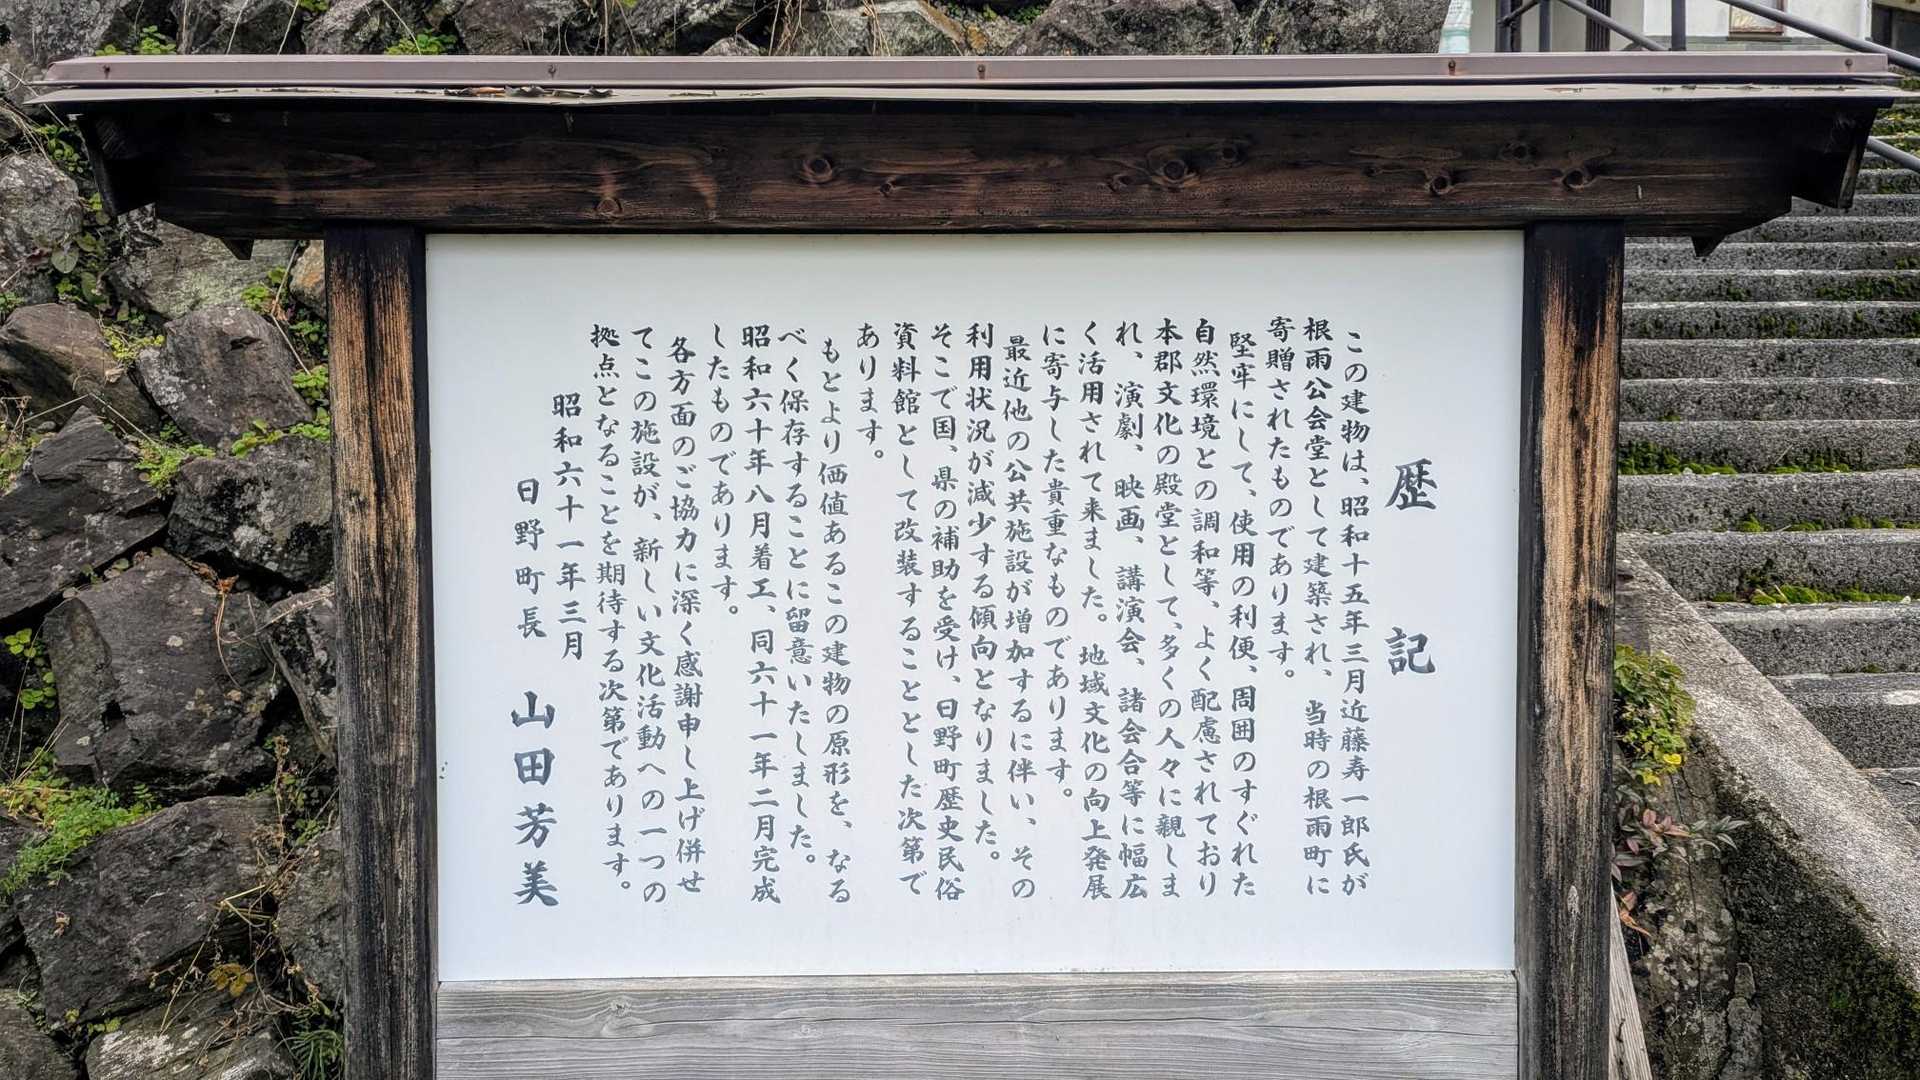 歴記
この建物は、昭和十五年三月近藤寿一郎氏が
根雨公会堂として建築され、当時の根雨町に
寄贈されたものであります。
堅牢にして、使用の利便、周囲のすぐれた
自然環境との調和等、よく配慮されており
本郡文化の殿堂として、多くの人々に親しま
れ、演劇、映画、講演会、諸会合等に幅広
く活用されて来ました。地域文化の向上発展
に寄与した貴重なものであります。
最近他の公共施設が増加するに伴い、その
利用状況が減少する傾向となりました。
そこで国、県の補助を受け、日野町歴史民俗
資料館として改装することとした次第で
あります。
もとより価値あるこの建物の原形を、なる
べく保存することに留意いたしました。
昭和六十年八月着工、同六十一年二月完成
したものであります。
各方面のご協力に深く感謝申し上げ併せ
てこの施設が、新しい文化活動への一つの
拠点となることを期待する次第であります。
昭和六十一年三月
日野町長 山田芳美